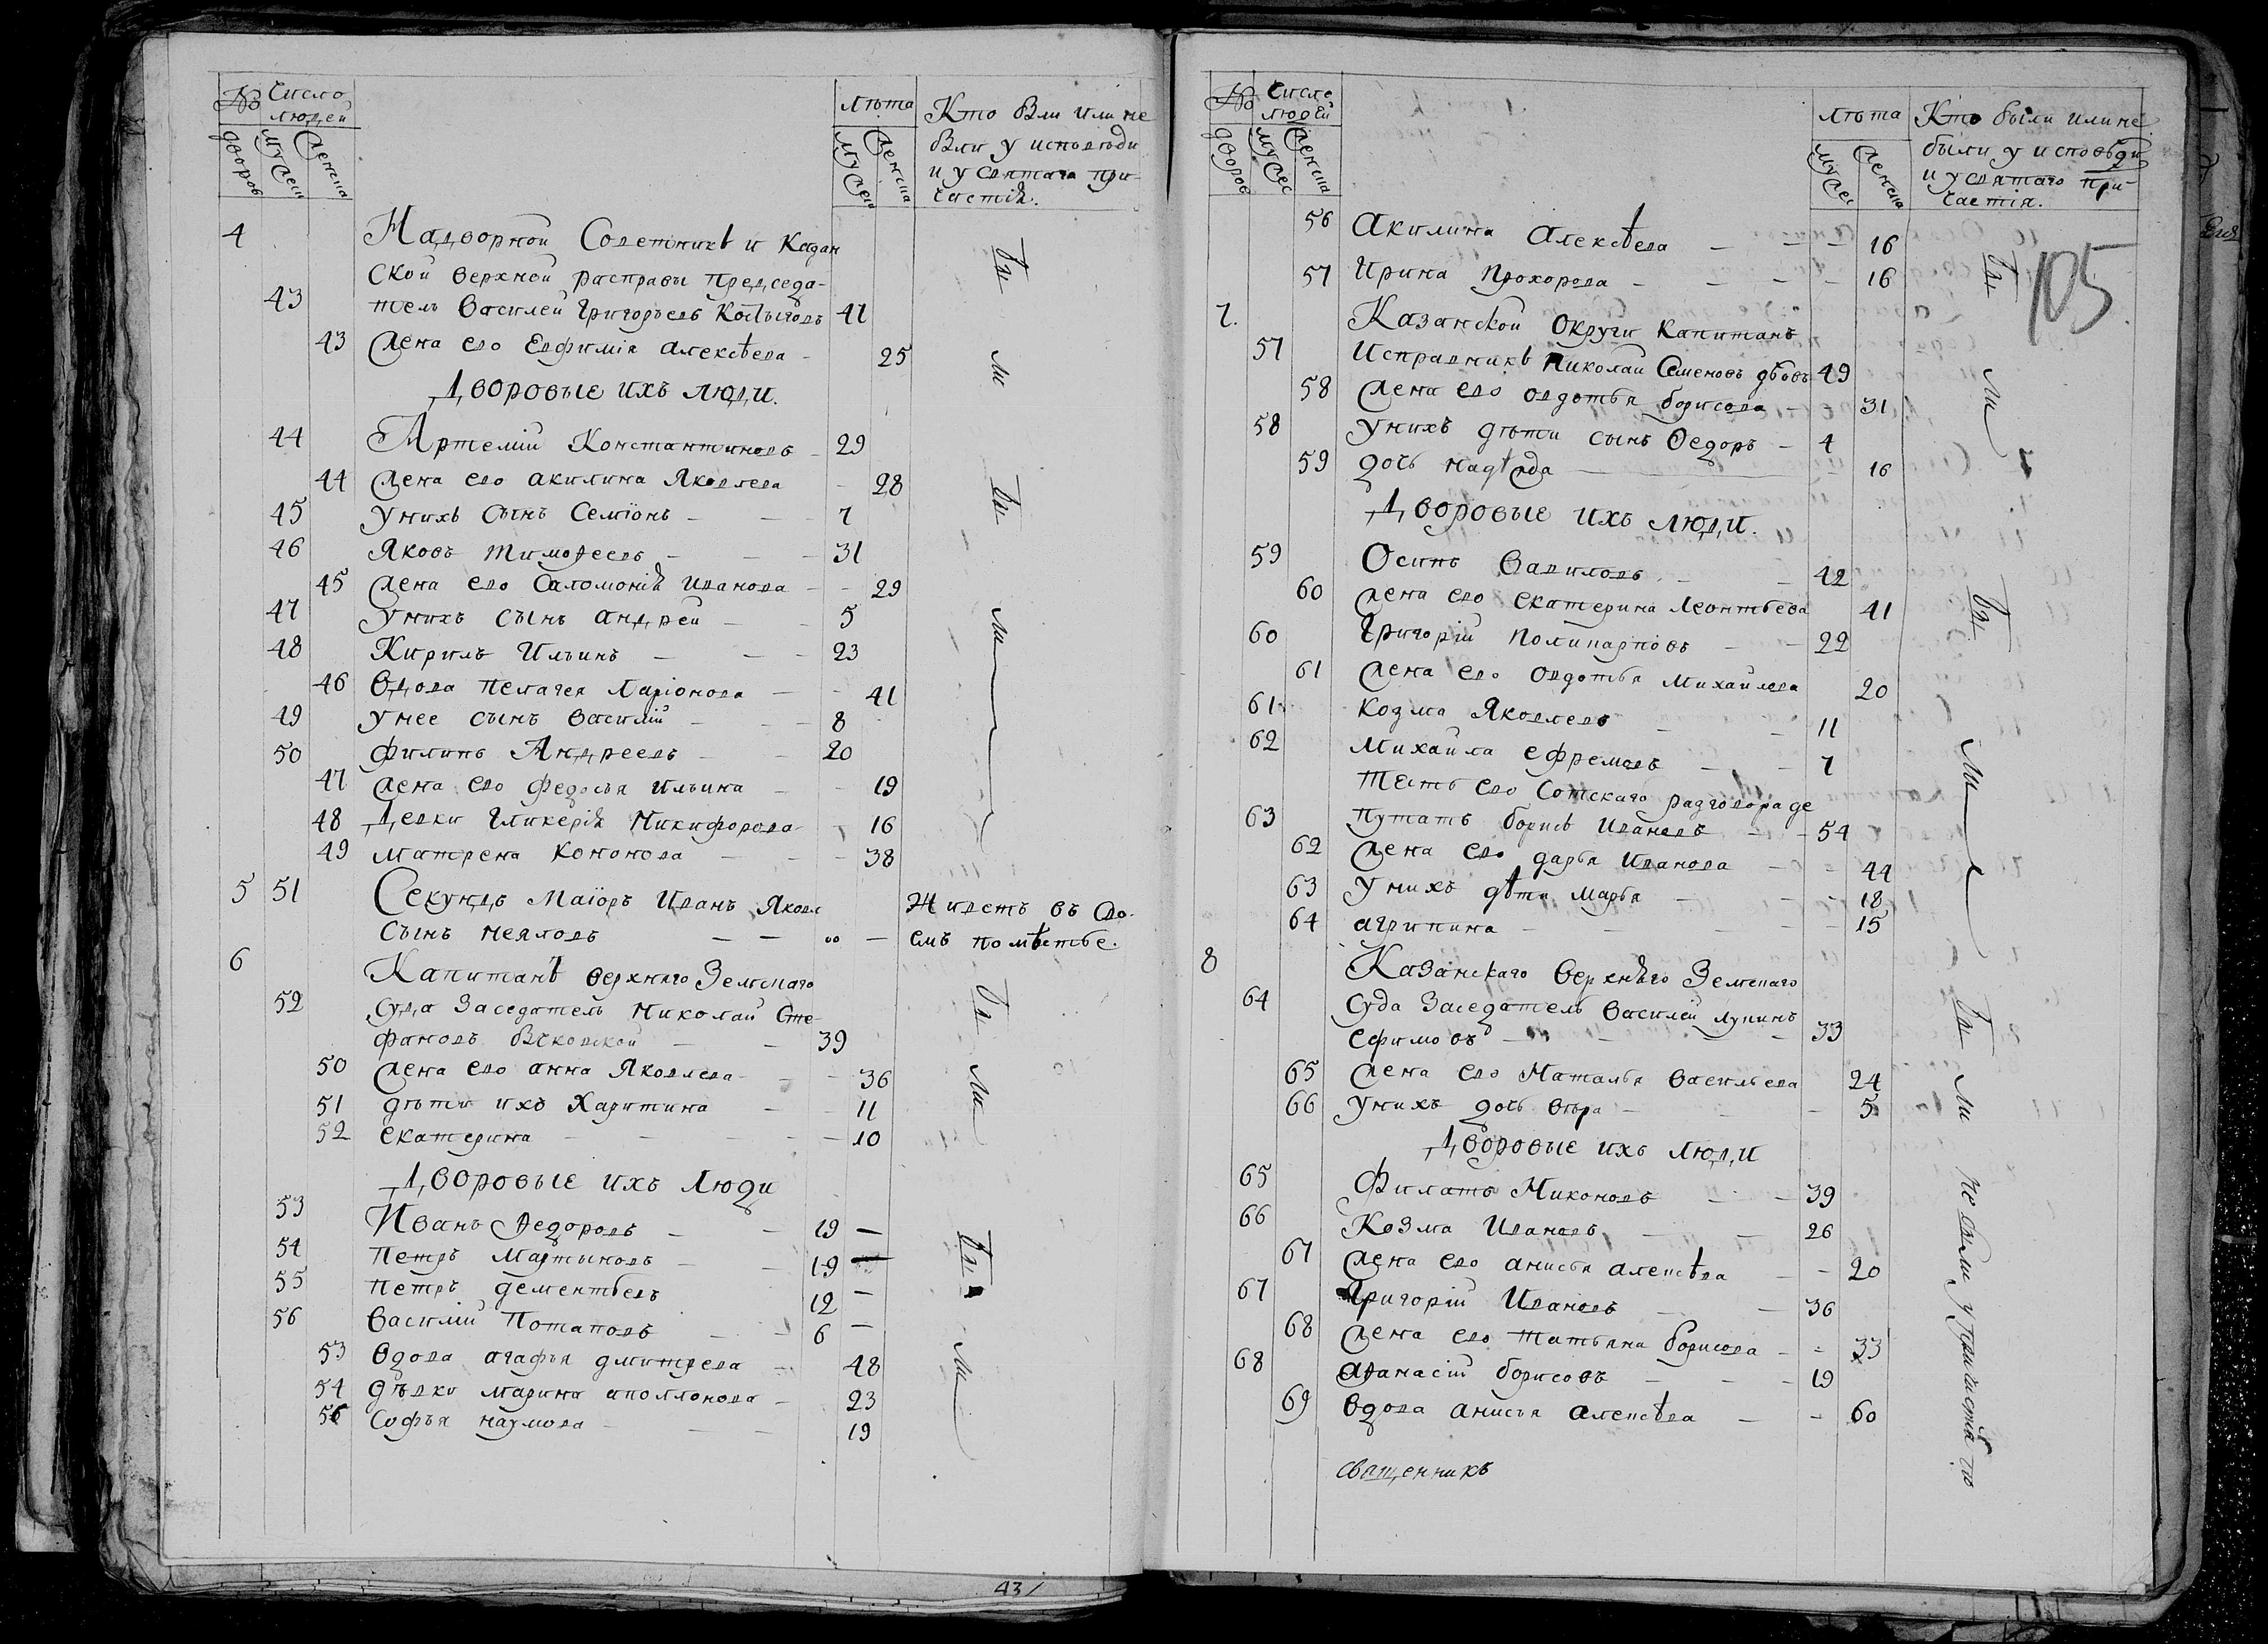 № дворов
Число людей
мужес
женска
лѣта
мужес
женска
Кто бли или не
бли у исповѣди
и у святаго при-
частія.
4 Надворной Советникъ и Казан
ской верхной расправы председа-
43 тель Василей Григорьевъ 41
43 жена ево Евфимія алексѣева - 25
Дворовые ихъ люди.
44 Артемій Константиновъ - 29
44 жена ево акилина Яковлева - 28
45 У нихъ сынъ Семіонъ - - 7
46 Яковъ Тимоѳеевъ - - - 31
45 жена ево Саломонія Иванова - - 29
47 У нихъ сынъ андрей - - 5
48 Кирилъ Ильинъ - - - 23
46 Вдова пелагея Ларіонова - - 41
49 У нее сынъ василій - - - 8
50 филипъ Андреевъ - - 20
47 жена ево федосья ильина - - 19
48 Девки гликерія Никифорова - 16
49 матрена кононова - - - 38
5 51 Секундъ Маіоръ Иванъ Яковл
сынъ неяловъ - - " - Живетъ въ сво-
емъ поместье.
6 Капитанъ верхняго Земскаго
52 суда Заседатель Николай Сте-
фановъ - - 39
50 жена ево анна Яковлева - - - 36
51 дѣти ихъ Харитина - - 11
52 екатерина - - - - - 10
Дворовые ихъ люди
53 Иванъ Ѳедоровъ - - 19 -
54 Петръ Мартыновъ - - 19 -
55 Петръ дементьевъ 12 -
56 василій Потаповъ - - 6 -
53 Вдова агафья дмитрева - 48
54 дѣвки марина аполлонова - 23
55 Софья наумова - - - 19
бы
ли
бы
ли
бы
ли
бы
ли
43
№ дворов
Число людей
мужес
женска
лѣта
мужес
женска
Кто были или не
были у исповѣди
и у святаго при-
частія.
105
56 Акилина Алексѣева - - - 16
57 Ирина Прохорова - - - - 16
7. Казанской округи капитанъ
57 Исправникъ Николай Семеновъ 49
58 жена ево овдотья борисова 31
58 У нихъ дѣти сынъ Ѳедоръ - 4
59 дочь надѣжда 16
Дворовые ихъ люди.
59 Осипъ Вавиловъ - - 42
60 жена ево екатерина Леонтьева 41
60 Григорій поликарповъ - - 22
61 жена ево овдотья михайлова 20
61 козма Яковлевъ - - 11
62 михайла ефремовъ - - 7
Тесть ево Сотскаго разговора де
63 путатъ борисъ Ивановъ - - 54
62 жена ево дарья Иванова - - 44
63 У нихъ дѣти марья - - - 18
64 агрипина - - - - - 15
8 Казанскаго верхнѣго Земскаго
64 суда Заседатель василій лупинъ
ефимовъ - - - - 33
65 жена ево Наталья васильева 24
66 У нихъ дочь вѣра - - 5
Дворовые ихъ люди
65 Филатъ Никоновъ - - 39
66 Козма Ивановъ - - 26
67 жена ево анисья алексѣва - - 20
67 Григорій Ивановъ - - 36
68 жена ево татьяна борисова - - 33
68 аѳанасій борисовъ - - - 19
69 вдова анисья алексѣва - - 60
священникъ
бы
ли
бы
ли
бы
ли
не были у причастія